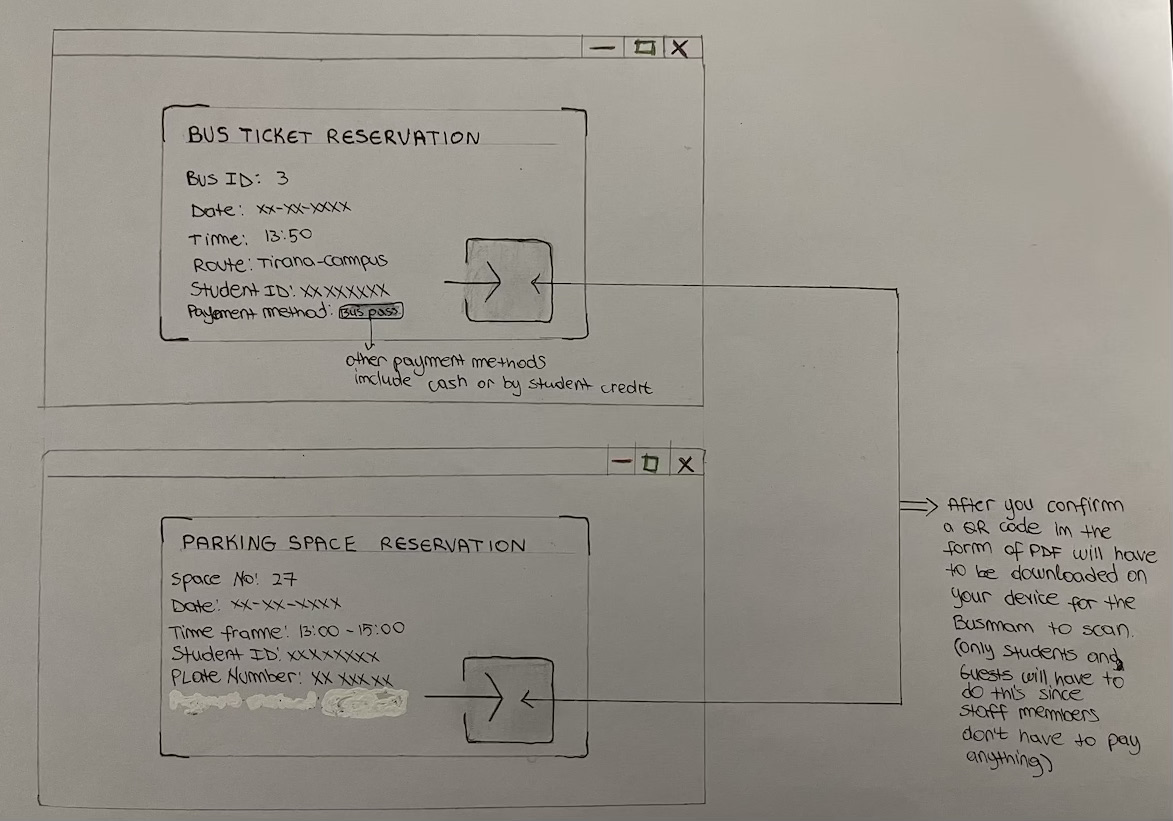 BUS TICKET RESERVATION
Bus ID: 3
Date: xx-xx-xxxx
Time: 13:50
Route: Tirana-campus
Student ID: xxxxxxxx
Payement method: Bus pass
other payment methods
include cash or by student credit
PARKING SPACE RESERVATION
Space No: 27
Date: xx-xx-xxxx
Time frame: 13:00 - 15:00
Student ID: xxxxxxxx
Plate Number: xx xxx xx
After you confirm
a QR code in the
form of PDF will have
to be downloaded on
your device for the
Busman to scan.
(only students and
Guests will have to
do this since
staff members
don't have to pay
anything)